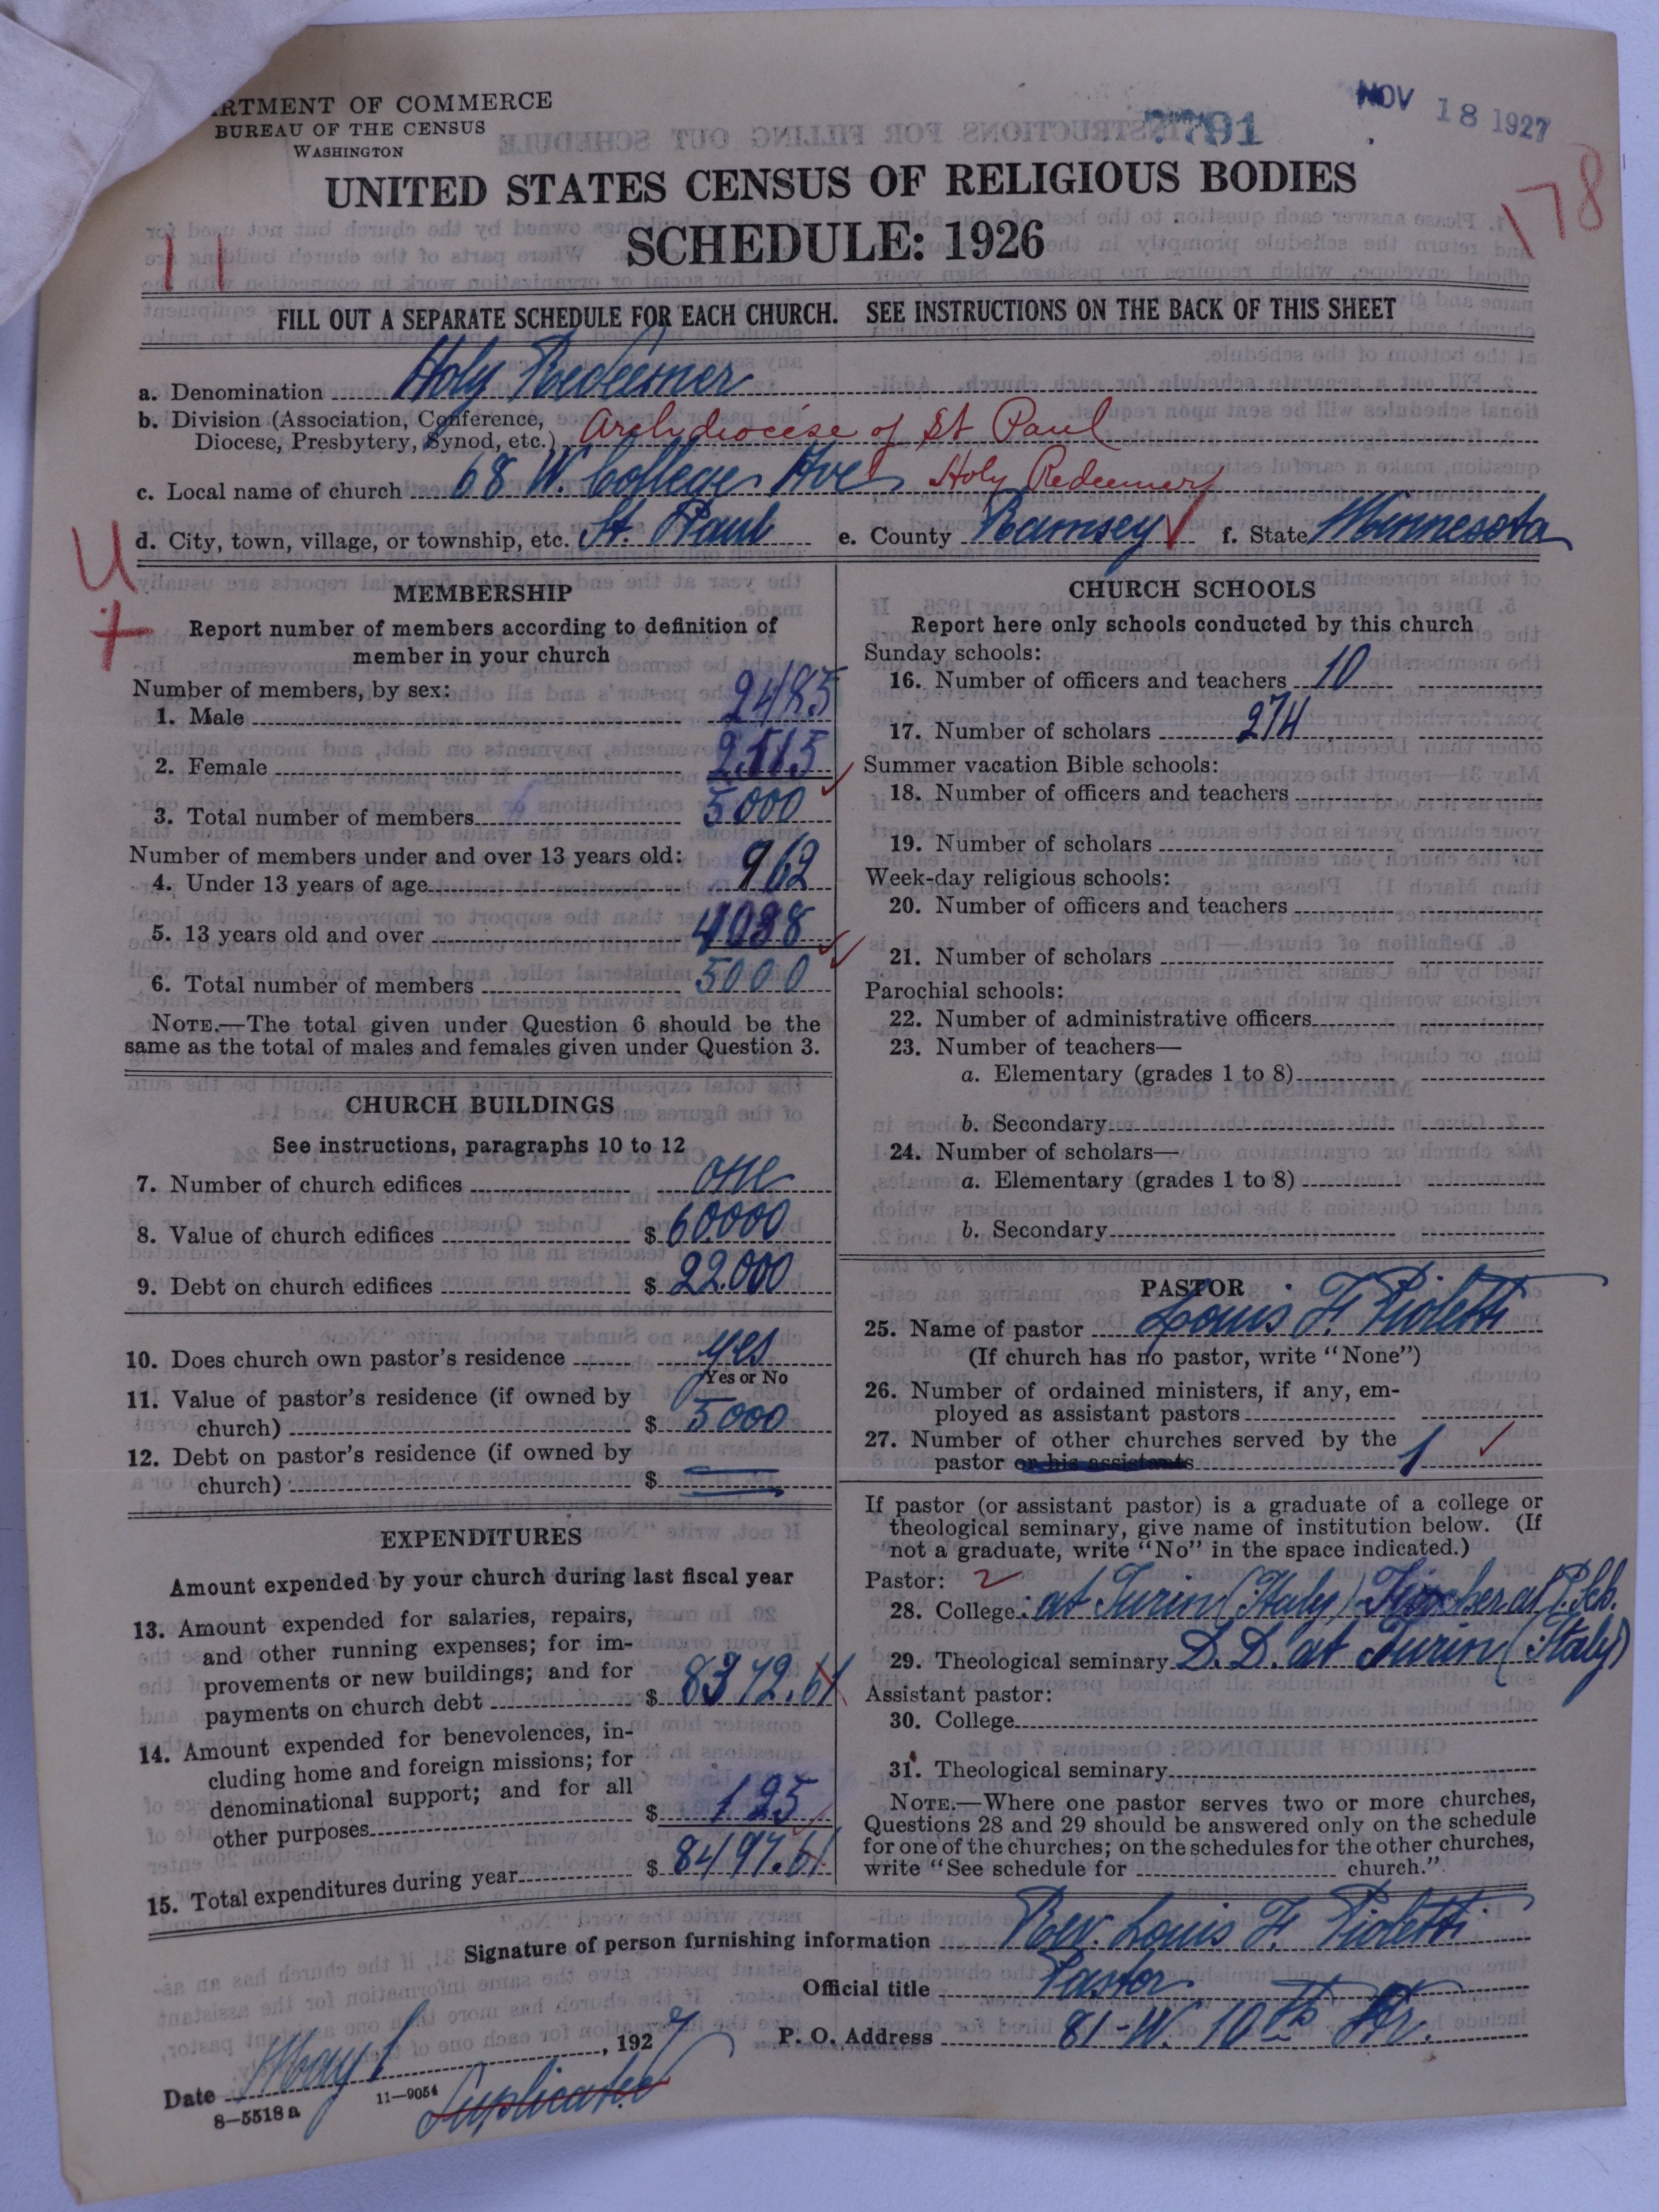 ARTMENT OF COMMERCE
BUREAU OF THE CENSUS
WASHINGTON
NOV 18 1927
178
UNITED STATES CENSUS OF RELIGIOUS BODIES
SCHEDULE: 1926
11
FILL OUT A SEPARATE SCHEDULE FOR EACH CHURCH. SEE INSTRUCTIONS ON THE BACK OF THIS SHEET
a. Denomination Holy Redeemer
b. Division (Association, Conference,
Diocese, Presbytery, Synod, etc.) Archdiocese of St Paul
c. Local name of church 68 W. College Ave Holy Redeemer
d. City, town, village, or township, etc. St. Paul e. County Ramsey f. State Minnesota
U
+
MEMBERSHIP
Report number of members according to definition of
member in your church
Number of members, by sex:
1. Male 2485
2. Female 2515
3. Total number of members 5000
Number of members under and over 13 years old:
4. Under 13 years of age 962
5. 13 years old and over 4038
6. Total number of members 5000
NOTE.—The total given under Question 6 should be the
same as the total of males and females given under Question 3.
CHURCH BUILDINGS
See instructions, paragraphs 10 to 12
7. Number of church edifices one
8. Value of church edifices $ 60000
9. Debt on church edifices $ 22.000
10. Does church own pastor's residence yes
Yes or No
11. Value of pastor's residence (if owned by
church) $ 5000
12. Debt on pastor's residence (if owned by
church) $
EXPENDITURES
Amount expended by your church during last fiscal year
13. Amount expended for salaries, repairs,
and other running expenses; for im-
provements or new buildings; and for
payments on church debt $ 8372.61
14. Amount expended for benevolences, in-
cluding home and foreign missions; for
denominational support; and for all
other purposes $ 125
15. Total expenditures during year $ 8497.61
CHURCH SCHOOLS
Report here only schools conducted by this church
Sunday schools:
16. Number of officers and teachers 10
17. Number of scholars 274
Summer vacation Bible schools:
18. Number of officers and teachers
19. Number of scholars
Week-day religious schools:
20. Number of officers and teachers
21. Number of scholars
Parochial schools:
22. Number of administrative officers
23. Number of teachers—
a. Elementary (grades 1 to 8)
b. Secondary
24. Number of scholars—
a. Elementary (grades 1 to 8)
b. Secondary
PASTOR
25. Name of pastor Louis F. Pioletti
(If church has no pastor, write "None")
26. Number of ordained ministers, if any, em-
ployed as assistant pastors
27. Number of other churches served by the
pastor or his assistants 1
If pastor (or assistant pastor) is a graduate of a college or
theological seminary, give name of institution below. (If
not a graduate, write "No" in the space indicated.)
Pastor: 2
28. College: at Turin (Italy)
29. Theological seminary D.D. at Turin (Italy)
Assistant pastor:
30. College
31. Theological seminary
NOTE.—Where one pastor serves two or more churches,
Questions 28 and 29 should be answered only on the schedule
for one of the churches; on the schedules for the other churches,
write "See schedule for church."
Signature of person furnishing information Rev. Louis F. Pioletti
Official title Pastor
Date May 1, 1927 P. O. Address 81-W. 10th Str.
8-5518a 11-9054 Duplicated